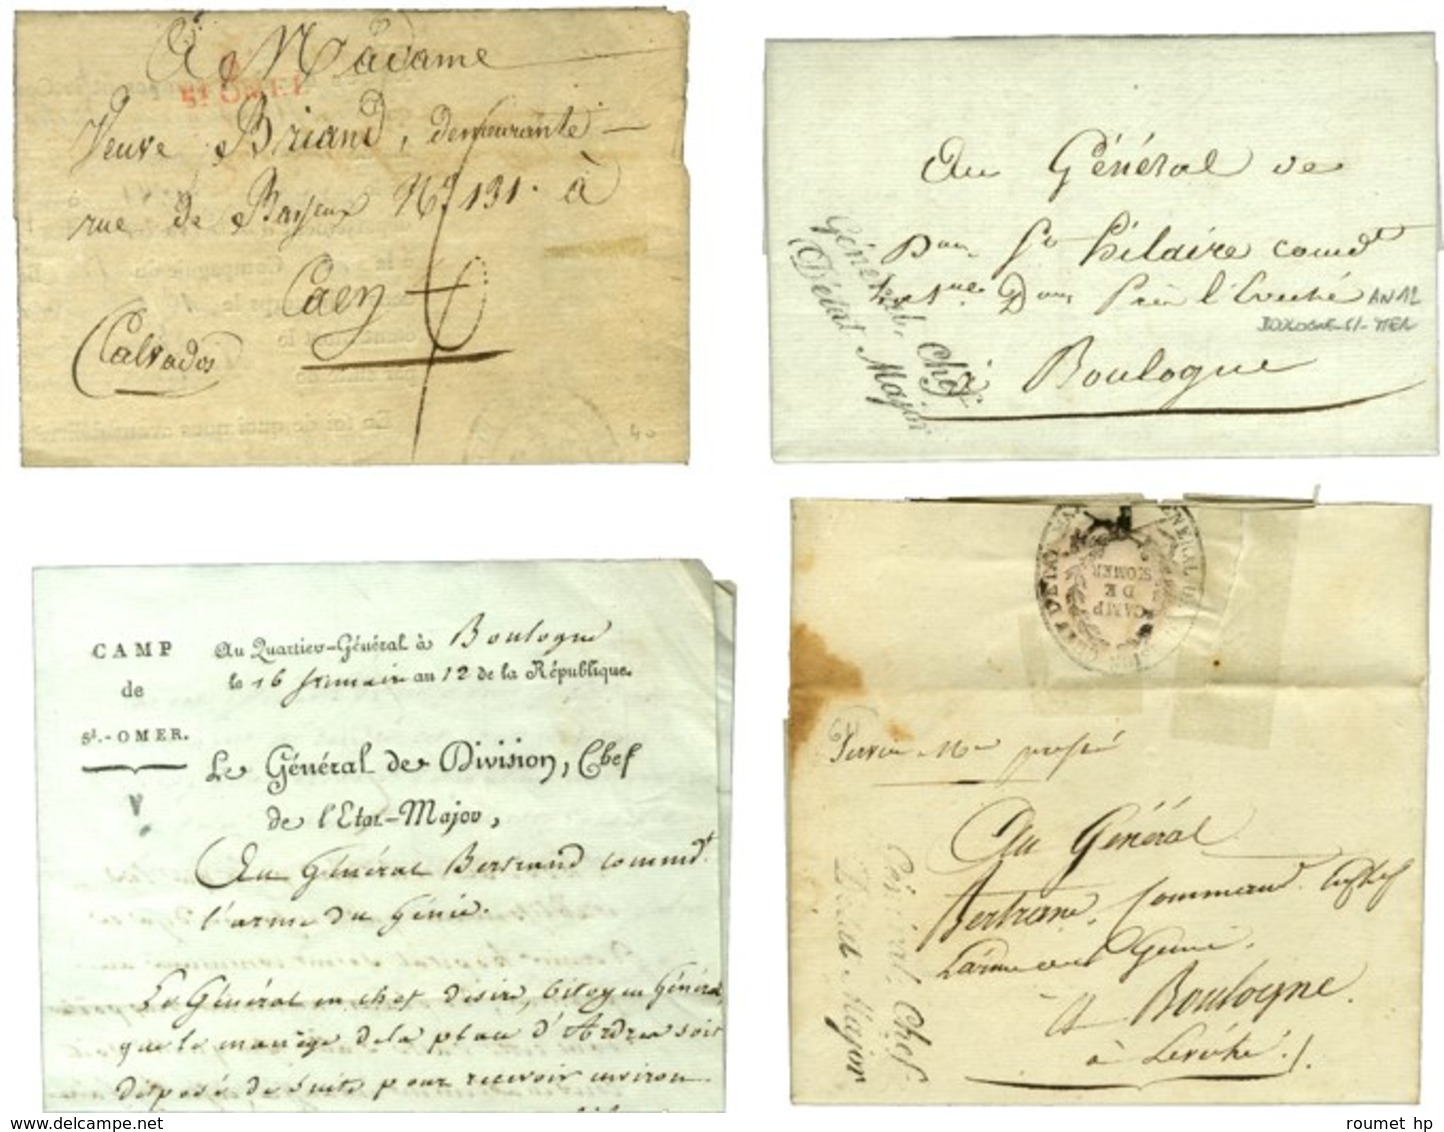 A Madame
St OMER
Veuve Briand, demeurante
rue de Bayeux No. 131. à
Caen
Calvados
40
Au Général de
St hilaire comdt
Près l'Evéché AN 12
BOULOGNE S/- MER
à Boulogne
Général, Chef
D'état Major
CAMP
de
St.-OMER.
Au Quartier-Général à Boulogne
le 16 frimaire an 12 de la République.
Le Général de Division, Chef
de l'Etat-Major,
Au Général Bertrand commdt
l'arme du Génie.
Le Général en chef désire, Citoyen Général
que le manège de la place d'Ardres soit
disposé de suite pour recevoir environ
CAMP
DE
St OMER
Au Général
Bertrand, Command
L'arme du Génie
A Boulogne
à Levéché.
Général, Chef
D'état Major
roumet hp